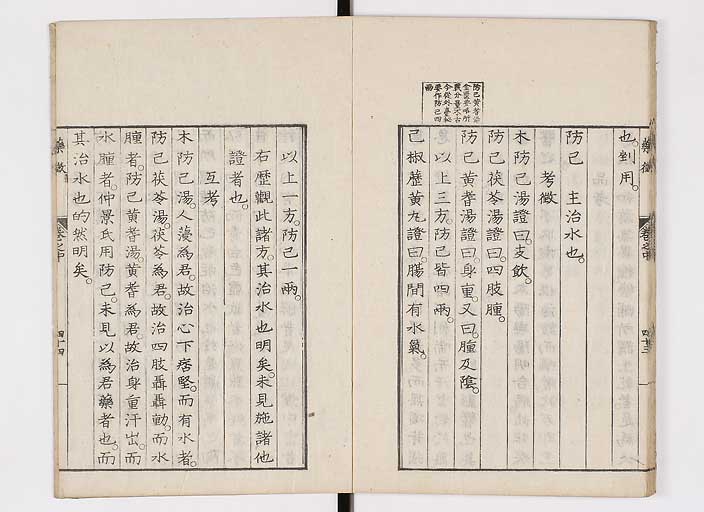 藥徵
卷之中
四十三
也。剉用。
防己　主治水也。
考徵
木防己湯證曰。支飲。
防己茯苓湯證曰。四肢腫。
防己黃耆湯證曰。身重。又曰。腫及陰。
以上三方。防己皆四兩。
己椒藶黃丸證曰。腸間有水氣。
防己黃耆湯
金匱要略所
載分量不古
今從外臺秘
要作防己四
兩
以上一方。防己一兩。
右歷觀此諸方。其治水也明矣。未見施諸他
證者也。
互考
木防己湯。人蔘為君。故治心下痞堅。而有水者。
防己茯苓湯。茯苓為君。故治四肢聶聶動。而水
腫者。防己黃耆湯。黃耆為君。故治身重汗出。而
水腫者。仲景氏用防己。未見以為君藥者也。而
其治水也的然明矣。
藥徵
卷之中
四十四